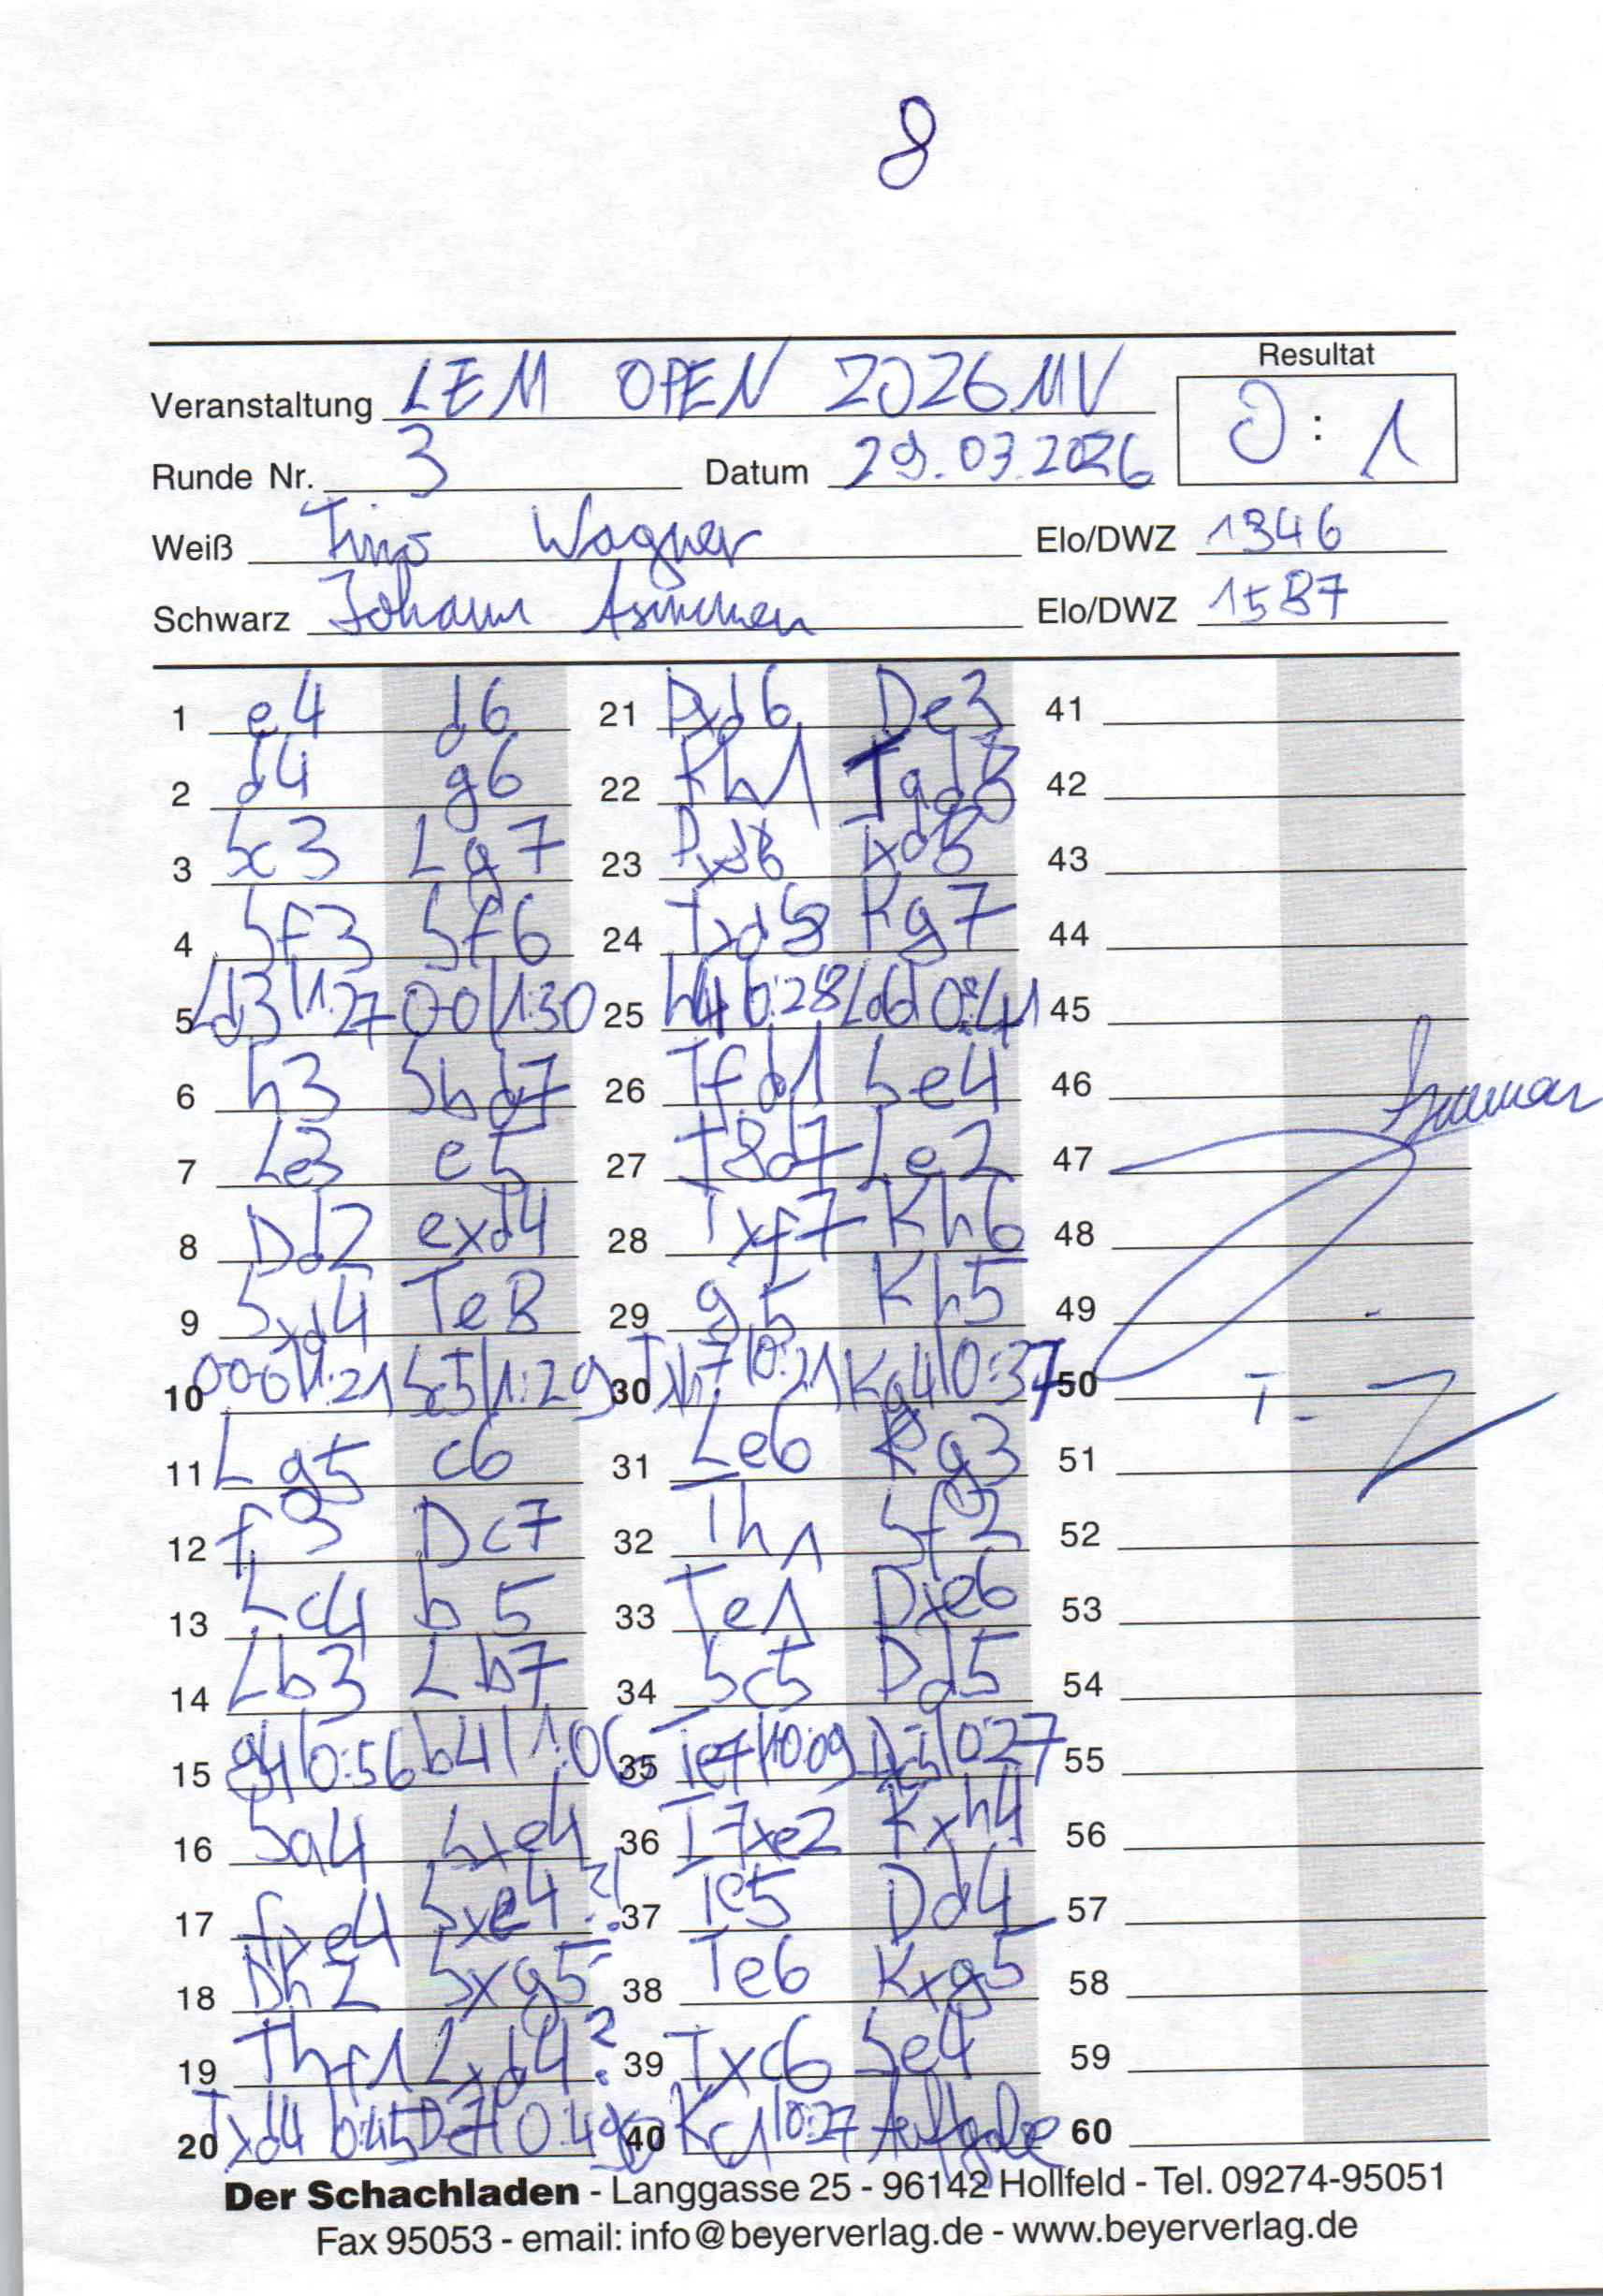 8
Resultat
Veranstaltung LEM OPEN 2026 MV
0 : 1
Runde Nr. 3 Datum 29.03.2026
Weiß Tino Wagner Elo/DWZ 1346
Schwarz Johann Elo/DWZ 1587
1 e4 d6 21 Dxd6 De3 41
2 d4 g6 22 Kh1 Tad8 42
3 Sc3 Lg7 23 Dxd8 Txd8 43
4 Sf3 Sf6 24 Txd8 Kg7 44
5 Ld3 | 1:27 00 | 1:30 25 h4 | 0:28 La6 | 0:41 45
6 h3 Sbd7 26 Tfd1 Se4 46
7 Le3 e5 27 T8d7 Le2 47
8 Dd2 exd4 28 Txf7 Kh6 48
9 Sxd4 Te8 29 g5 Kh5 49
10 000 | 1:21 Sc5 | 1:29 30 Txh7 | 0:21 Kg4 | 0:37 50 T-
11 Lg5 c6 31 Le6 Kg3 51
12 f3 Dc7 32 Th1 Sf2 52
13 Lc4 b5 33 Te1 Dxe6 53
14 Lb3 Lb7 34 Sc5 Dd5 54
15 g4 | 0:56 b4 | 1:06 35 Te7 | 0:09 Dc5 | 0:27 55
16 Sa4 Sxe4 36 T7xe2 Kxh4 56
17 fxe4 Sxe4?! 37 Te5 Dd4 57
18 Dh2 Sxg5 38 Te6 Kxg5 58
19 Thf1 Lxd4? 39 Txc6 Se4 59
20 Txd4 0:45 De7 | 0:49 40 Kc1 | 0:27 Aufgabe 60
Der Schachladen - Langgasse 25 - 96142 Hollfeld - Tel. 09274-95051
Fax 95053 - email: info@beyerverlag.de - www.beyerverlag.de